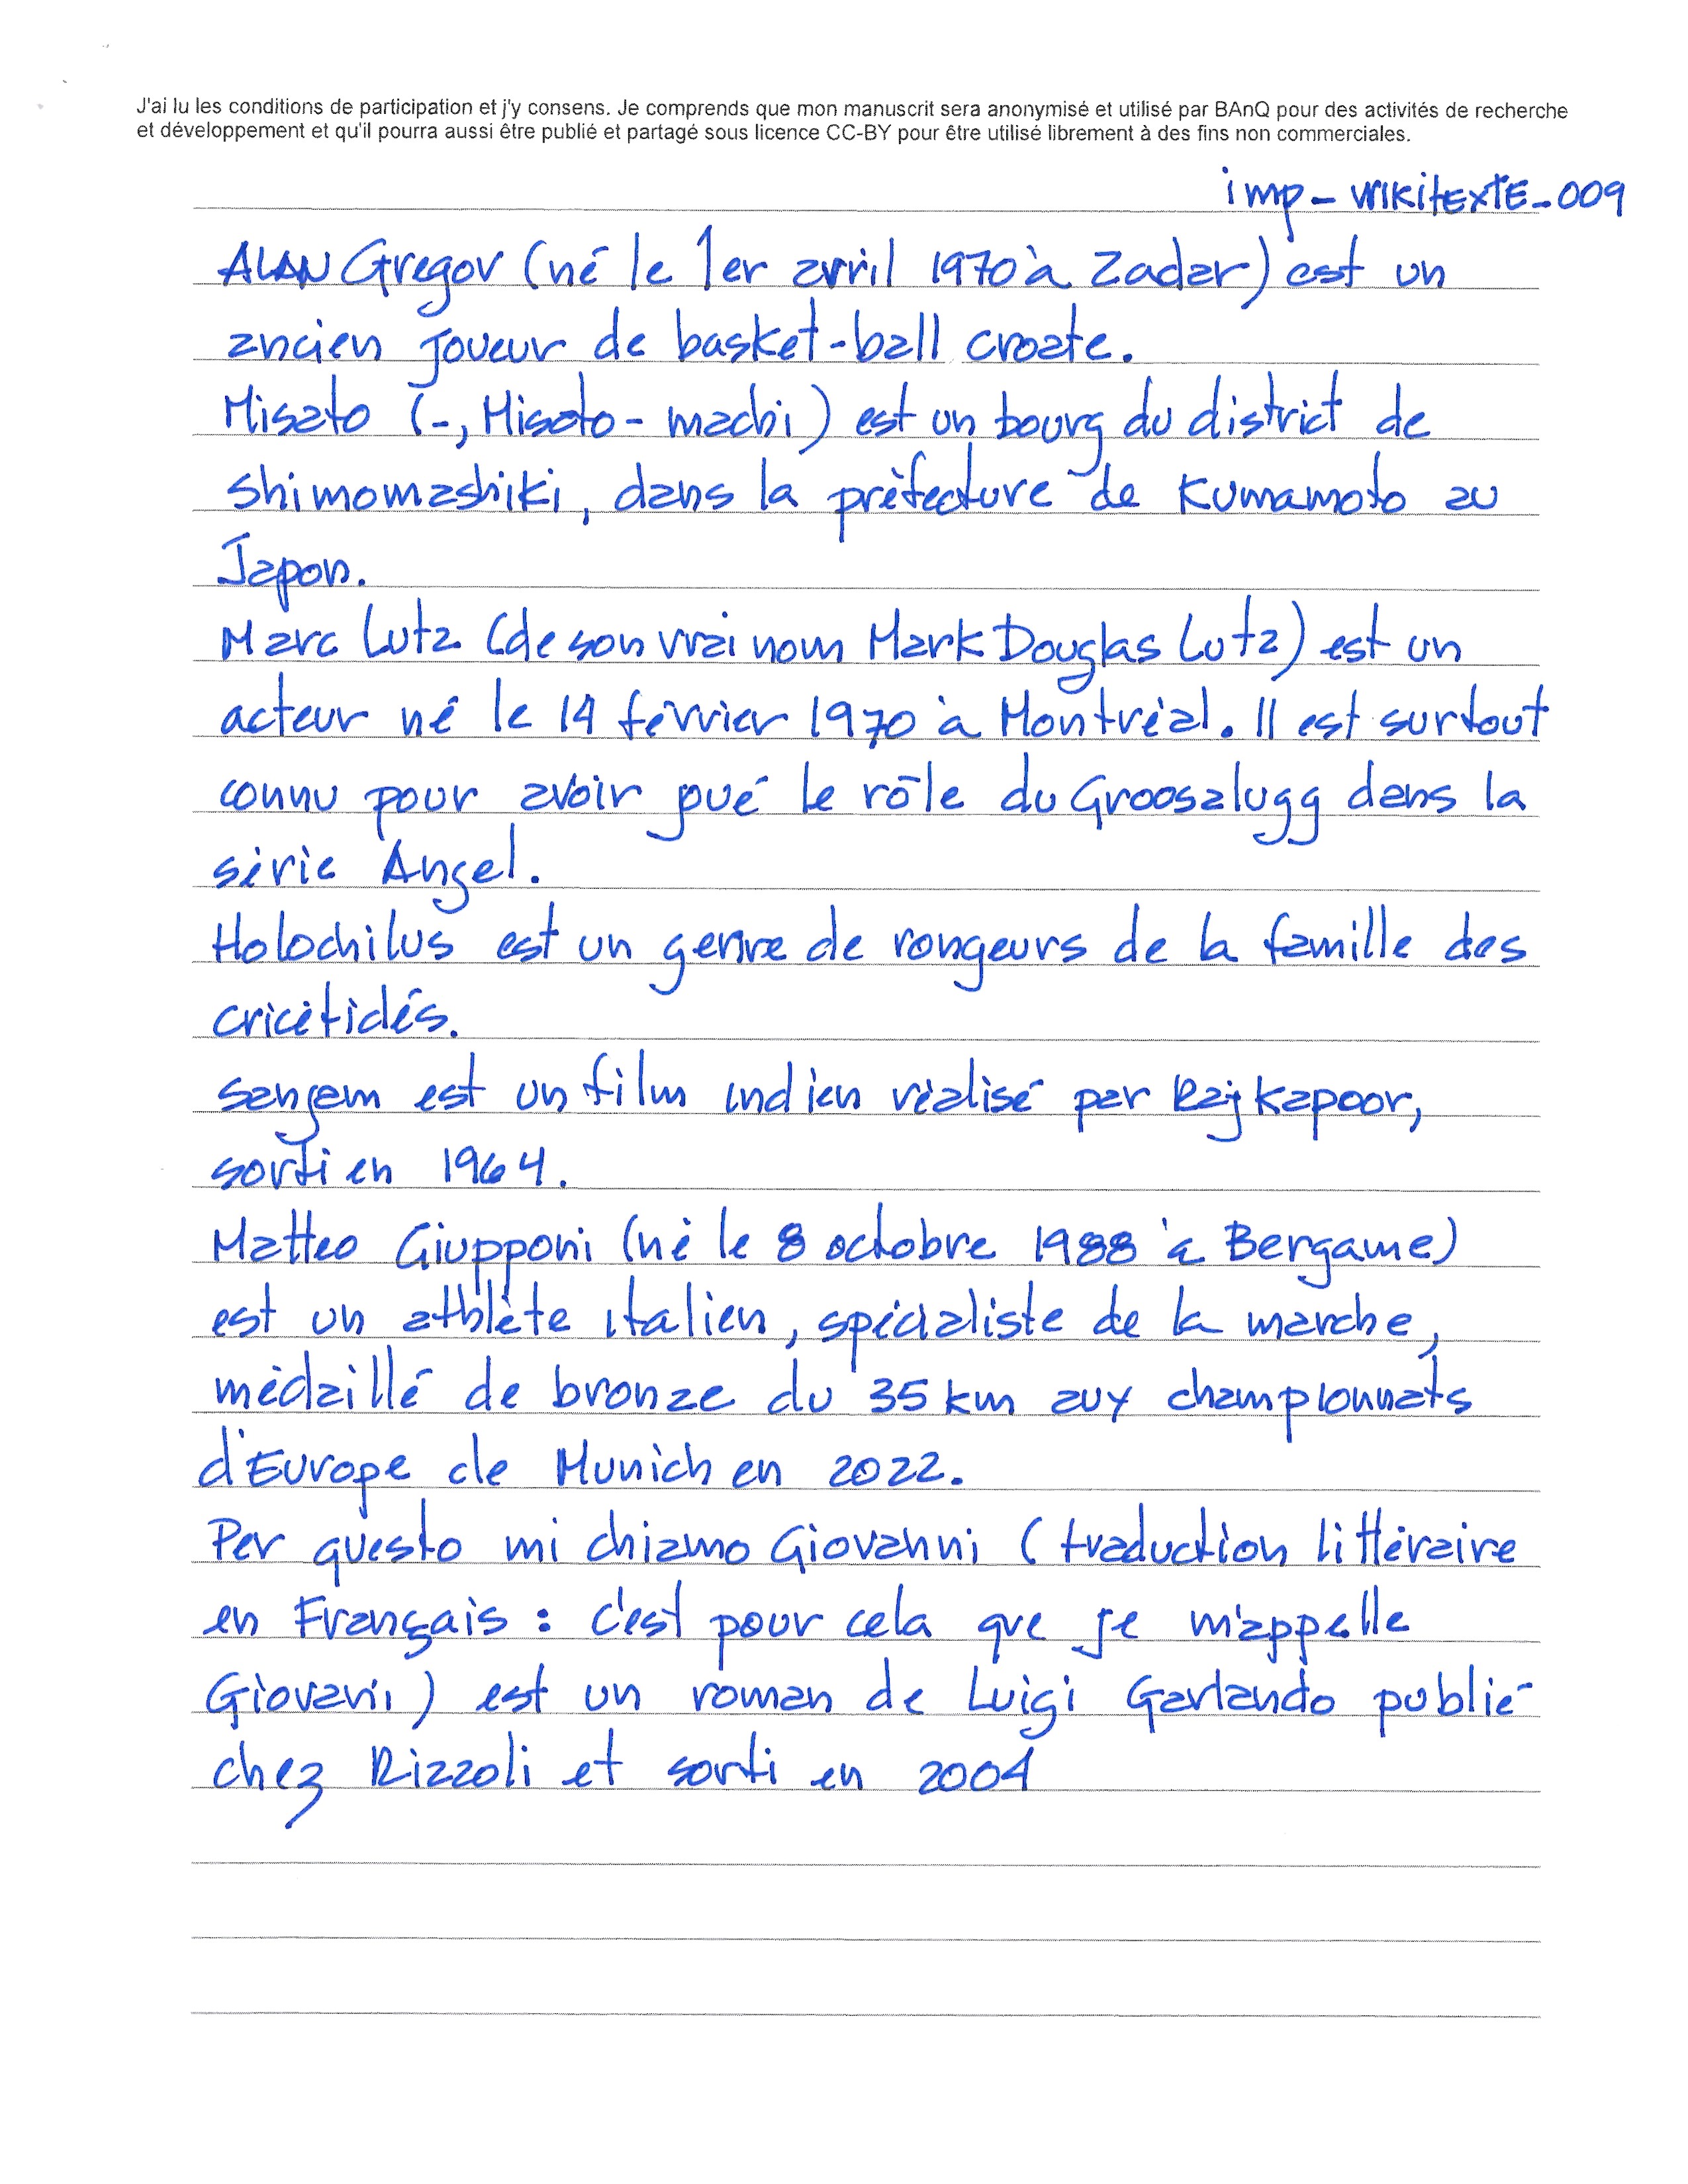 J'ai lu les conditions de participation et j'y consens. Je comprends que mon manuscrit sera anonymisé et utilisé par BAnQ pour des activités de recherche
et développement et qu'il pourra aussi être publié et partagé sous licence CC-BY pour être utilisé librement à des fins non commerciales.
imp-WIKITEXTE-009
ALAN Gregov (né le 1er avril 1970 à Zadar) est un
ancien joueur de basket-ball croate.
Misato (-, Misato-machi) est un bourg du district de
Shimomashiki, dans la préfecture de Kumamoto au
Japon.
Marc Lutz (de son vrai nom Mark Douglas Lutz) est un
acteur né le 14 février 1970 à Montréal. Il est surtout
connu pour avoir joué le rôle du Groosalugg dans la
série Angel.
Holochilus est un genre de rongeurs de la famille des
cricétidés.
Sangam est un film indien réalisé par Raj Kapoor,
sorti en 1964.
Matteo Giupponi (né le 8 octobre 1988 à Bergame)
est un athlète italien, spécialiste de la marche,
médaillé de bronze du 35 km aux championnats
d'Europe de Munich en 2022.
Per questo mi chiamo Giovanni (traduction littéraire
en Français : c'est pour cela que je m'appelle
Giovanni) est un roman de Luigi Garlando publié
chez Rizzoli et sorti en 2004